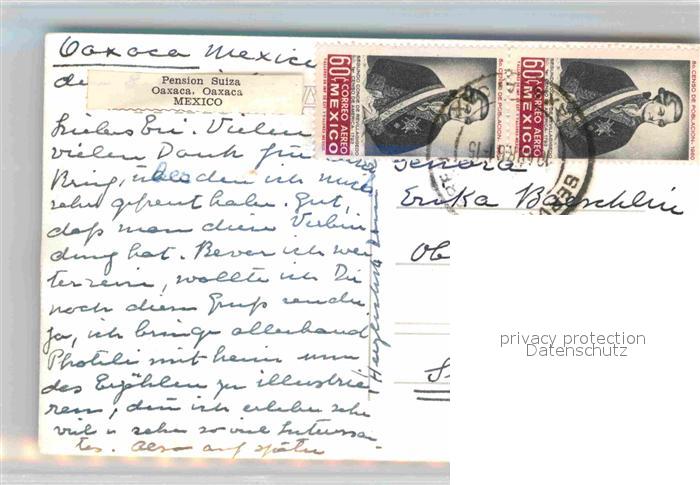 Oaxaca Mexico
Pension Suiza
Oaxaca, Oaxaca
MEXICO
Liebes Eri. Vielen
vielen Dank für
Brief, über den ich mich
sehr gefreut habe. Gut,
daß man diese Verbin
dung hat. Bevor ich wei
terreise, wollte ich Dir
noch diesen Gruß senden
Ja, ich bringe allerhand
Photili mit heim um
das Erzählen zu illustrie
ren, denn ich erlebe sehr
viel u sehe so viel Interessan-
tes. Also auf später
Herzlichste
60¢ CORREO AEREO
MEXICO
8o CENSO DE POBLACION
60¢ CORREO AEREO
MEXICO
8o CENSO DE POBLACION
Señora
Erika Baeschlin
privacy protection
Datenschutz